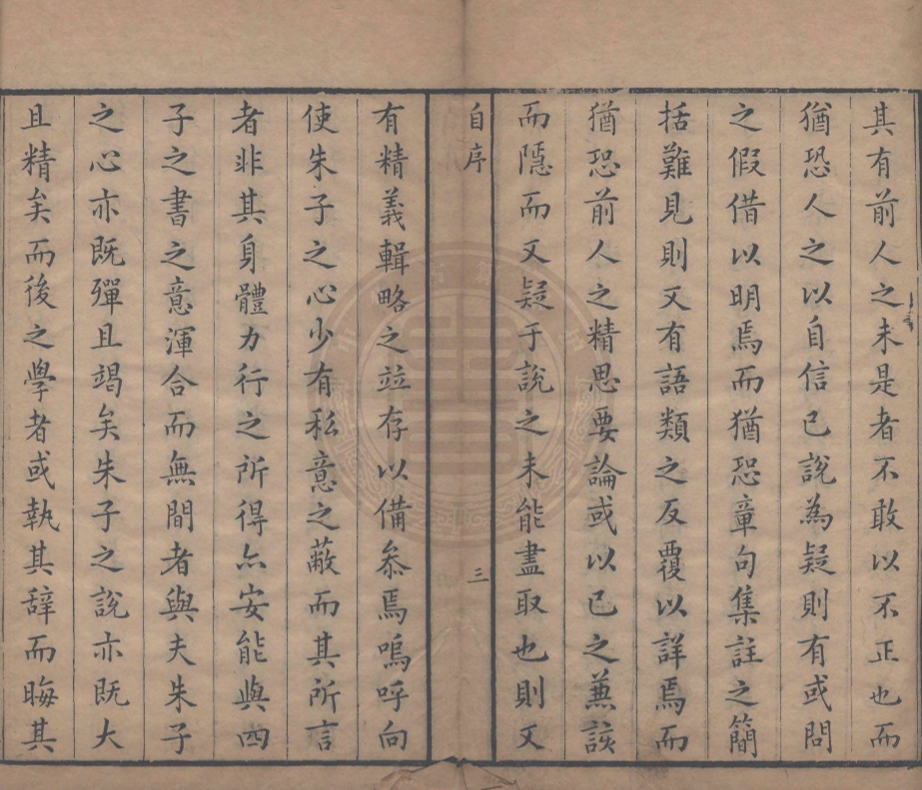 其有前人之未是者不敢以不正也而
猶恐人之以自信已說為疑則有或問
之假借以明焉而猶恐章句集註之簡
括難見則又有語類之反覆以詳焉而
猶恐前人之精思要論或以已之兼該
而隱而又疑于說之未能盡取也則又
自序
三
有精義輯略之並存以備叅焉嗚呼向
使朱子之心少有私意之蔽而其所言
者非其身體力行之所得亦安能與四
子之書之意渾合而無間者與夫朱子
之心亦既殫且竭矣朱子之說亦既大
且精矣而後之學者或執其辞而晦其